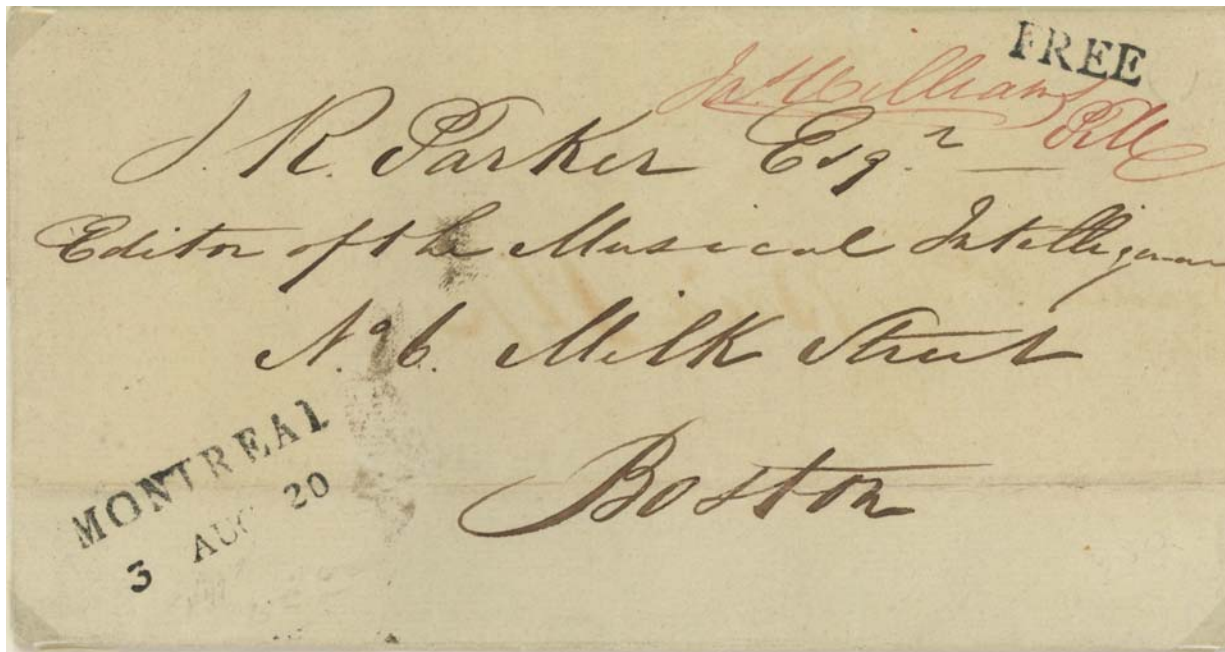 FREE
Jn. Williams
PM
J. R. Parker Esqr —
Editor of the Musical Intelligencer
No 6. Milk Street
Boston
MONTREAL
3 AUG 20